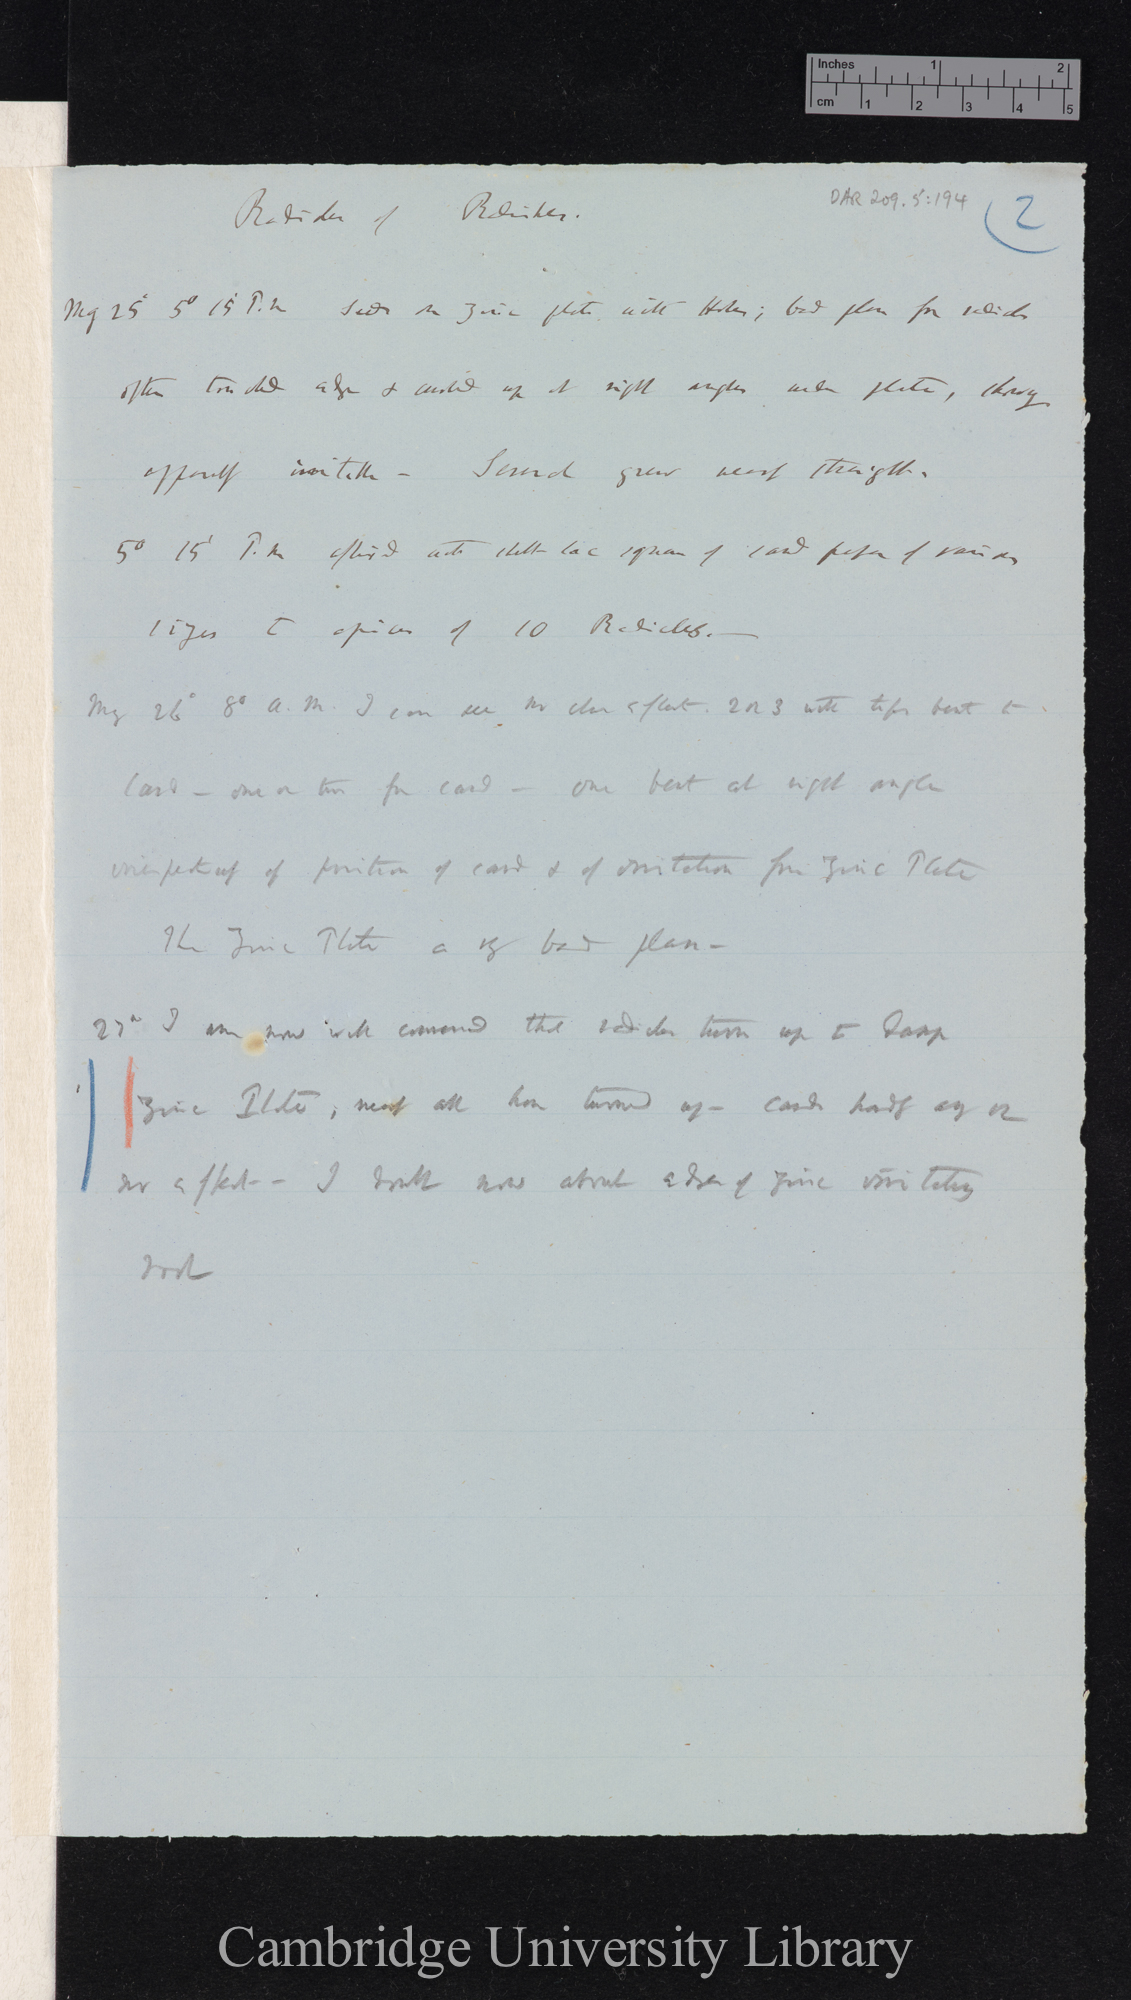 Inches 1 2
cm 1 2 3 4 5
DAR 209.5:194
2
Radicles of Radishes.
May 25 5° 15' P.m Seeds on Zinc plate with Holes; bad plan for radicles
often touched edge & curled up at right angles under plate, showing
apparently irritable – Several grew nearly straight.
5° 15' P.m affixed with shell-lac squares of card paper of various
sizes to apices of 10 Radicles. —
May 26° 8° a.m. I can see no clear effect. 2 or 3 with tips bent to
Card – one or two from card – one bent at right angles
irrespectively of position of card & of irritation from Zinc Plate
The Zinc Plate a very bad plan –
27th I am now well convinced that radicles turn up to Damp
Zinc Plate; nearly all have turned up – cards hardly any or
no effect – I doubt now about edges of Zinc irritating
root
Cambridge University Library